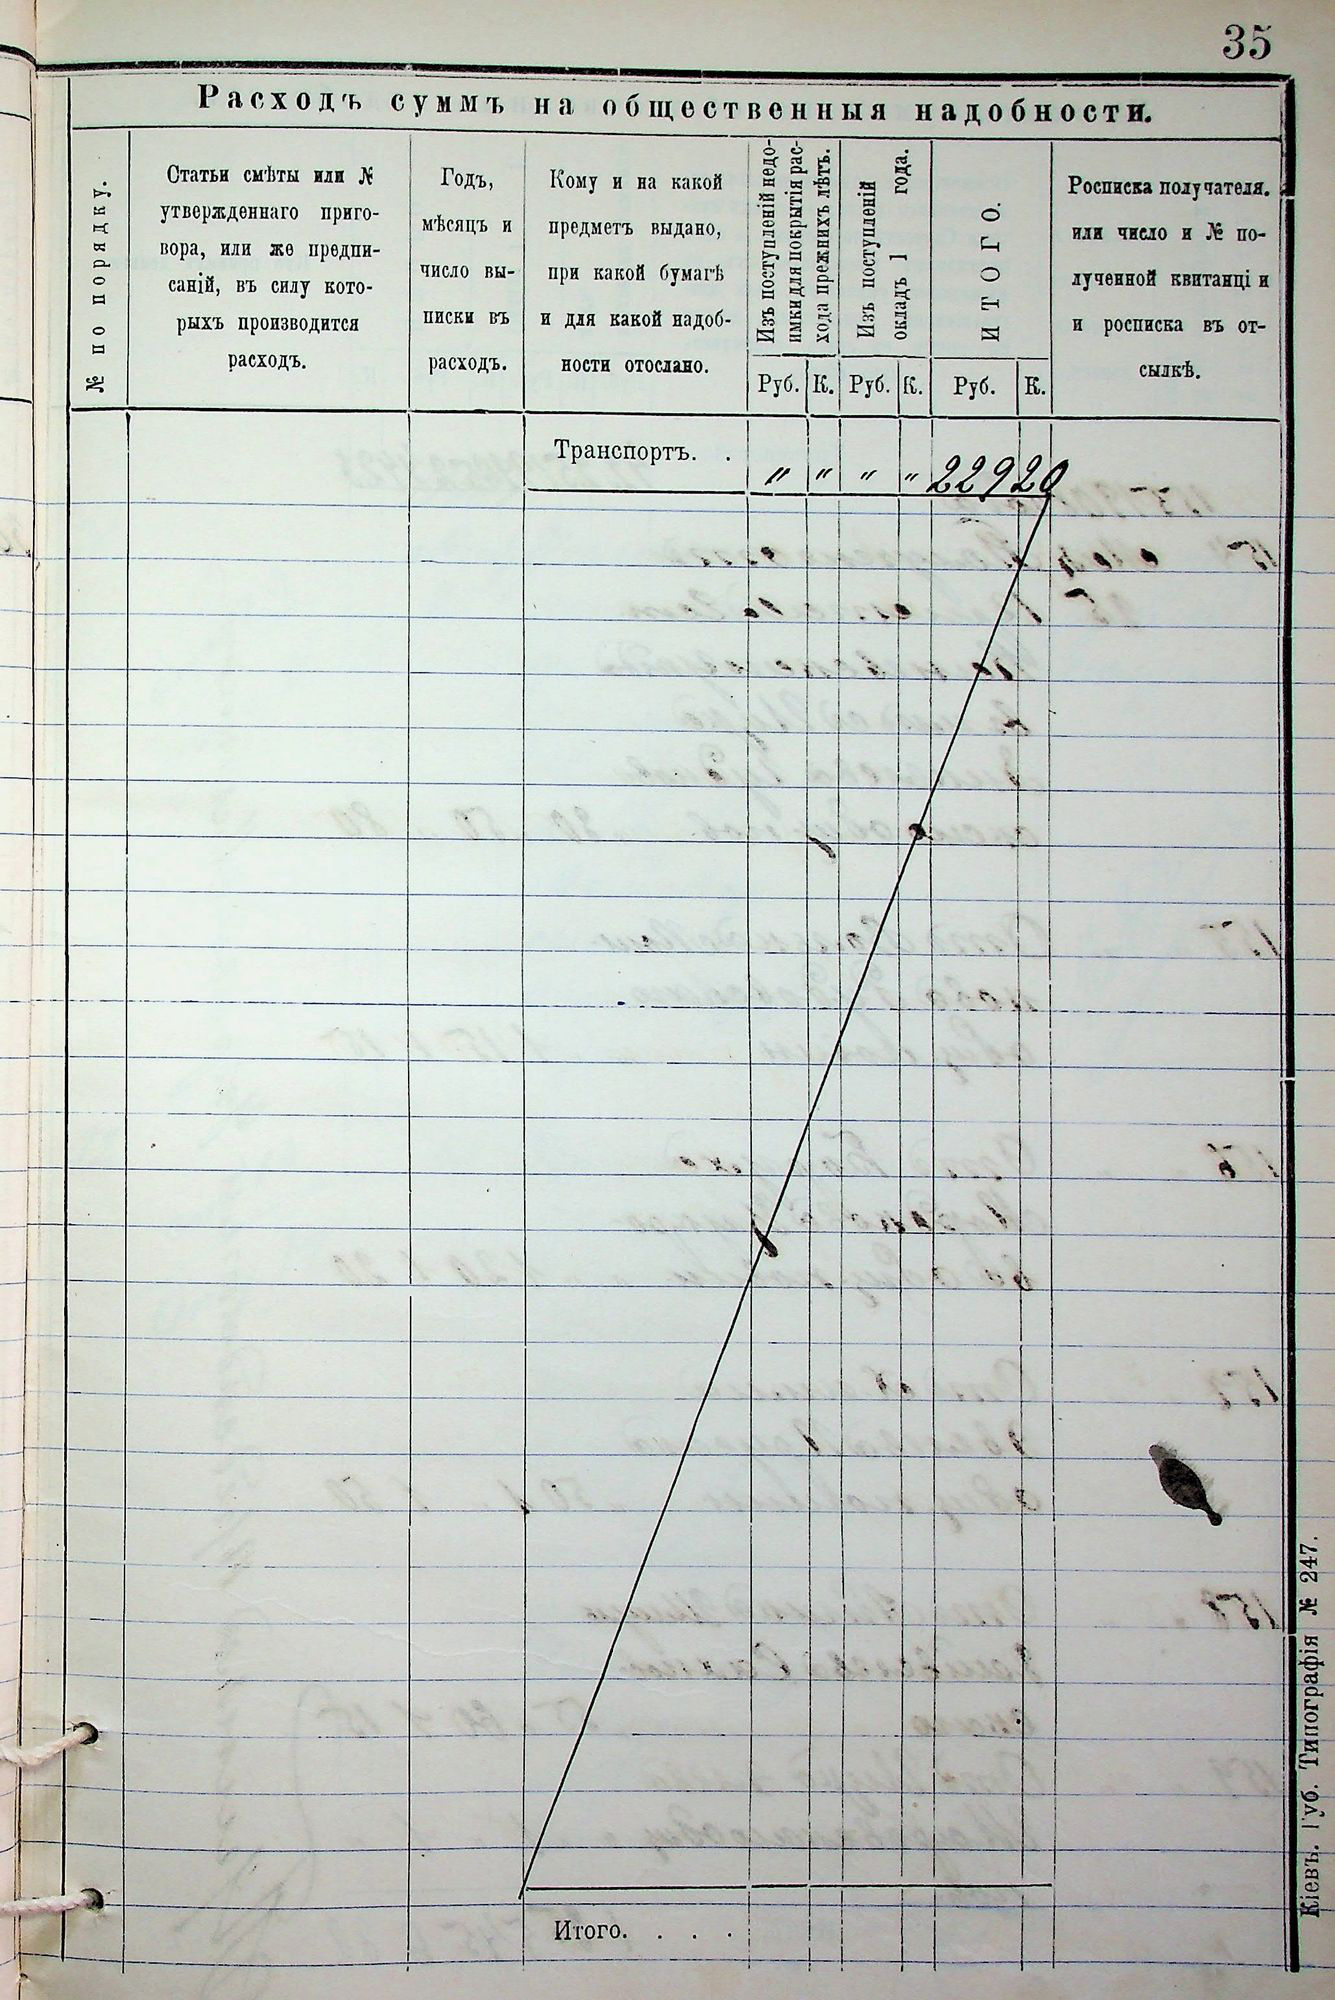 35
Расходъ суммъ на общественныя надобности.
№ по порядку.
Статьи смѣты или №
утвержденнаго приго-
вора, или же предпи-
саній, въ силу кото-
рыхъ производится
расходъ.
Годъ,
мѣсяцъ и
число вы-
писки въ
расходъ.
Кому и на какой
предметъ выдано,
при какой бумагѣ
и для какой надоб-
ности отослано.
Изъ поступленій недо-
имки для покрытія рас-
хода прежнихъ лѣтъ.
Изъ поступленій
окладъ 1 года.
ИТОГО.
Росписка получателя.
или число и № по-
лученной квитанці и
и росписка въ от-
сылкѣ.
Руб. К. Руб. К. Руб. К.
Транспортъ. . " " " " 229 20
Итого. . . .
Кіевъ. Губ. Типографія № 247.